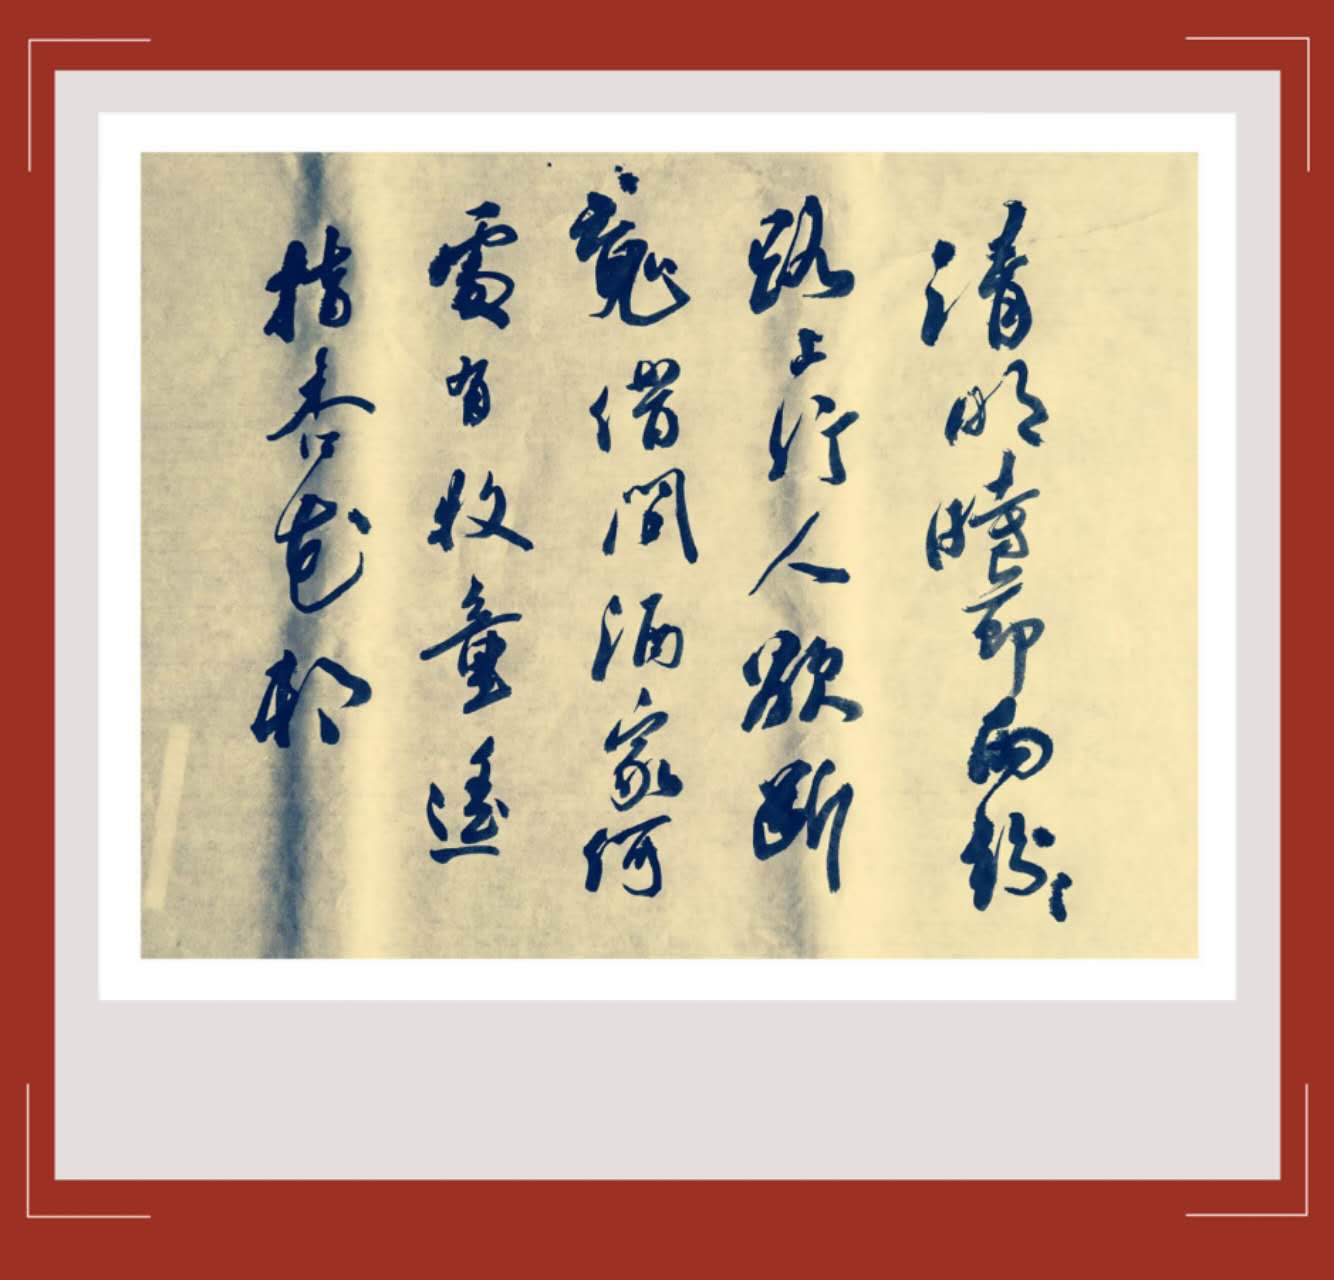 清明時節雨紛〻
路上行人欲斷
魂借問酒家何
處有牧童遙
指杏花邨